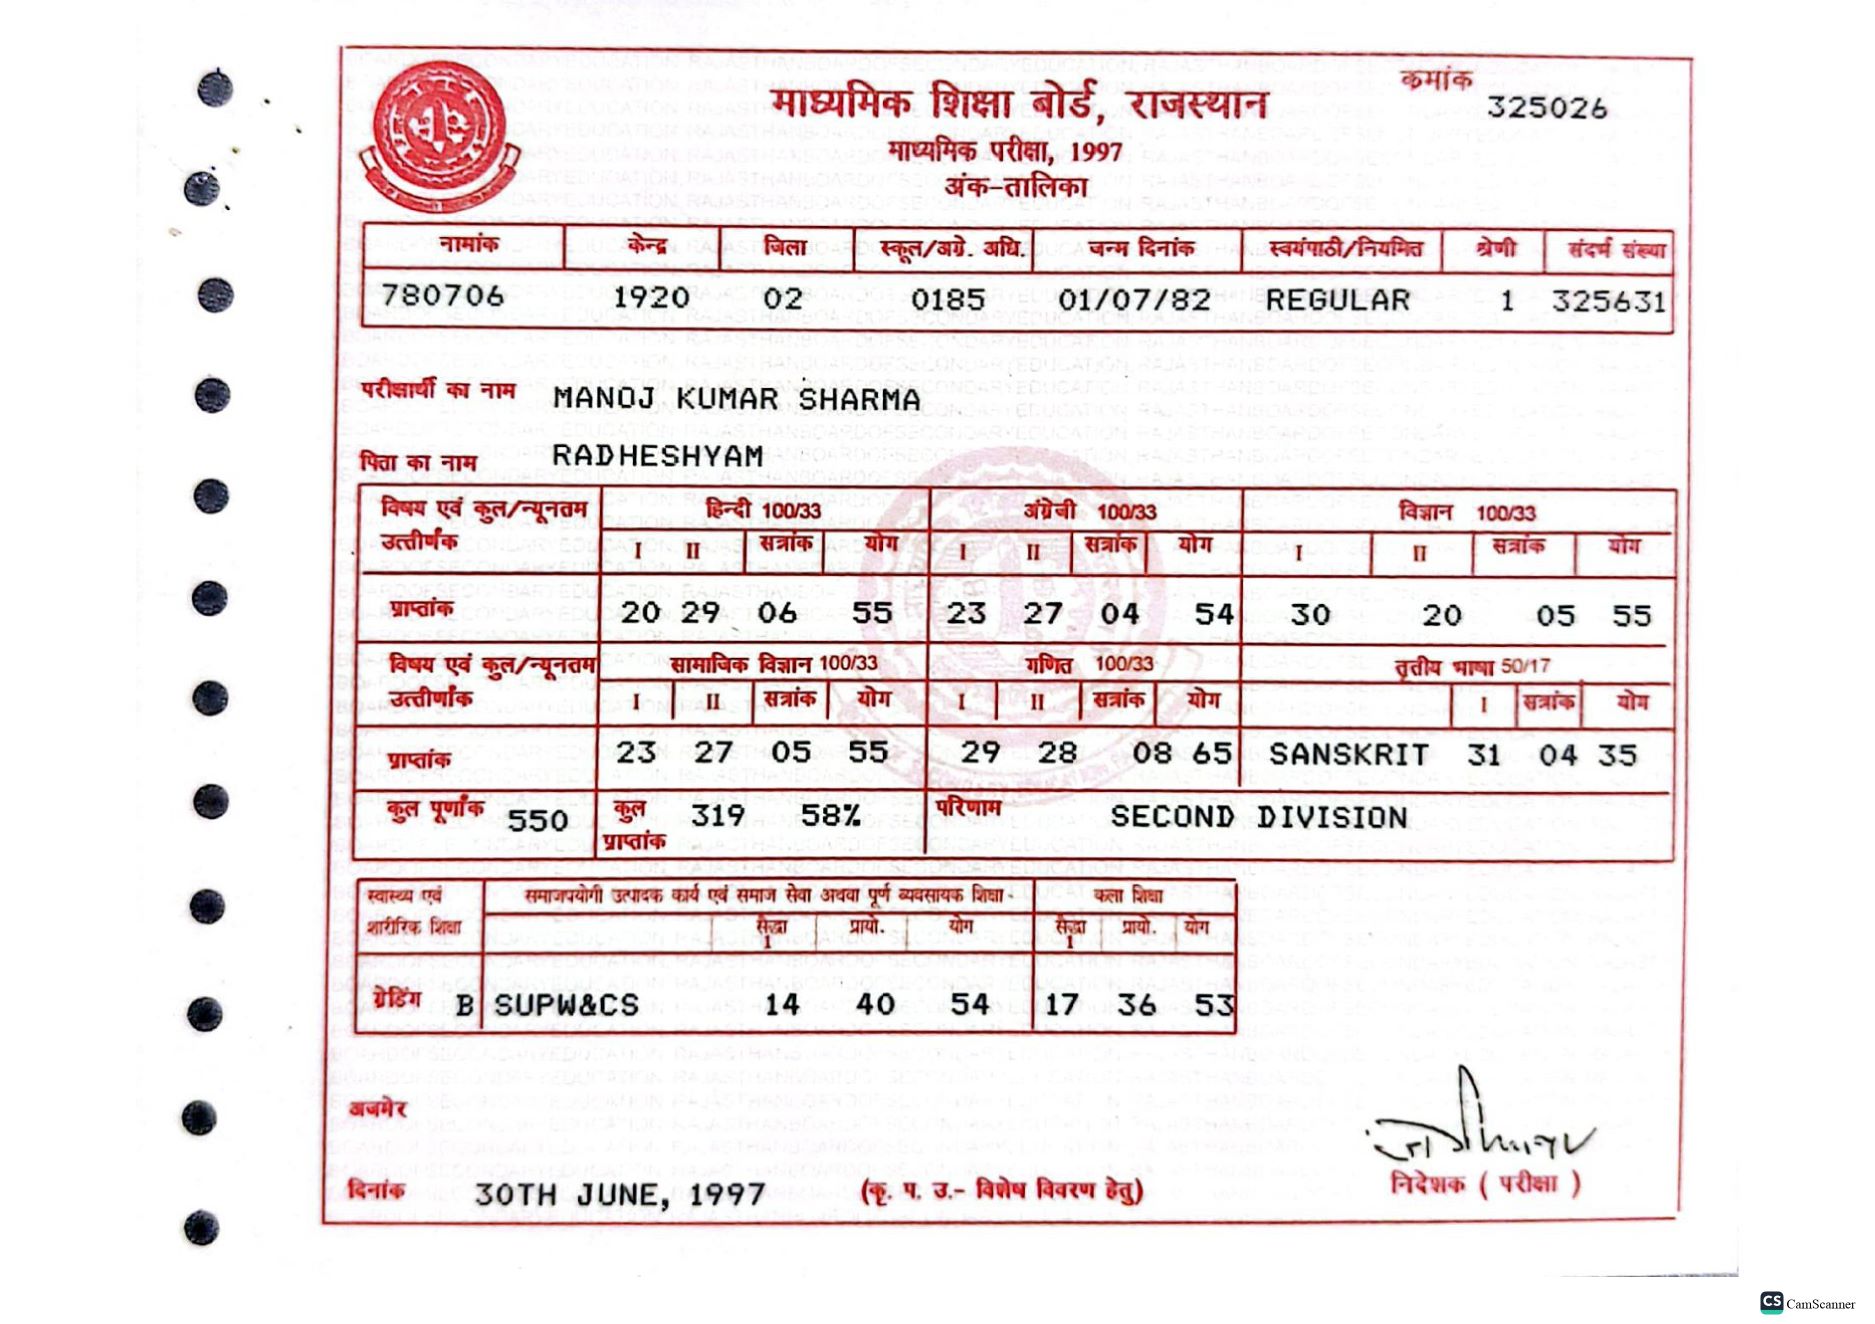 क्रमांक
325026
माध्यमिक शिक्षा बोर्ड, राजस्थान
माध्यमिक परीक्षा, 1997
अंक-तालिका
नामांक केन्द्र जिला स्कूल/अग्रे. अधि. जन्म दिनांक स्वयंपाठी/नियमित श्रेणी संदर्भ संख्या
780706 1920 02 0185 01/07/82 REGULAR 1 325631
परीक्षार्थी का नाम MANOJ KUMAR SHARMA
पिता का नाम RADHESHYAM
विषय एवं कुल/न्यूनतम हिन्दी 100/33 अंग्रेजी 100/33 विज्ञान 100/33
उत्तीर्णांक I II सत्रांक योग I II सत्रांक योग I II सत्रांक योग
प्राप्तांक 20 29 06 55 23 27 04 54 30 20 05 55
विषय एवं कुल/न्यूनतम सामाजिक विज्ञान 100/33 गणित 100/33 तृतीय भाषा 50/17
उत्तीर्णांक I II सत्रांक योग I II सत्रांक योग I सत्रांक योग
प्राप्तांक 23 27 05 55 29 28 08 65 SANSKRIT 31 04 35
कुल पूर्णांक 550 कुल प्राप्तांक 319 58% परिणाम SECOND DIVISION
स्वास्थ्य एवं समाजपयोगी उत्पादक कार्य एवं समाज सेवा अथवा पूर्ण व्यवसायक शिक्षा कला शिक्षा
शारीरिक शिक्षा सैद्धा 1 प्रायो. योग सैद्धा 1 प्रायो. योग
ग्रेडिंग B SUPW&CS 14 40 54 17 36 53
अजमेर
दिनांक 30TH JUNE, 1997 (कृ. प. उ.- विशेष विवरण हेतु) निदेशक ( परीक्षा )
CS CamScanner